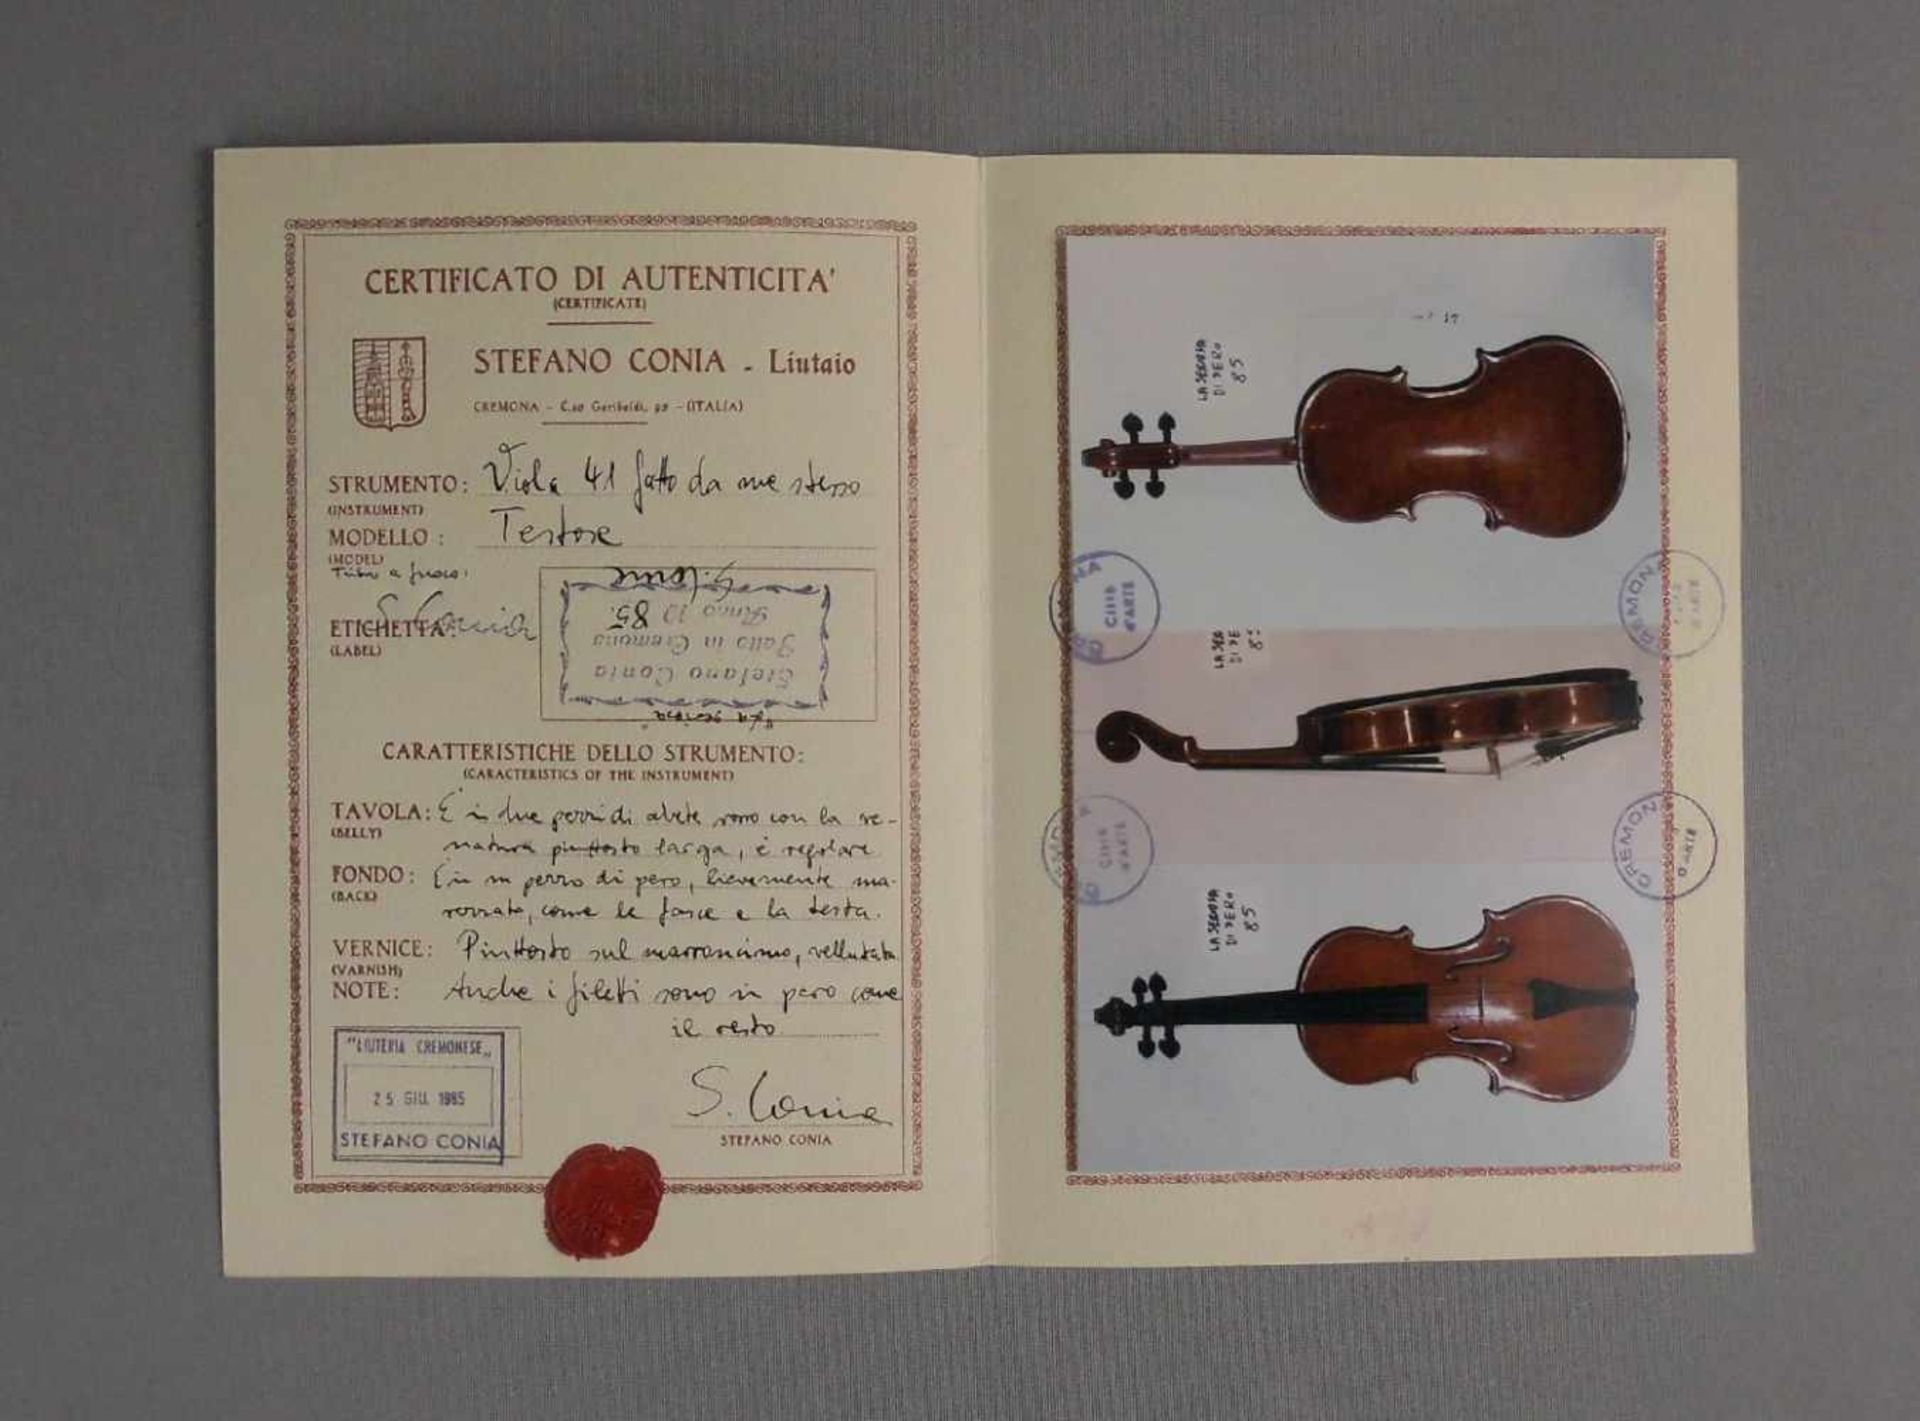 CERTIFICATO DI AUTENTICITA'
(CERTIFICATE)
STEFANO CONIA - Liutaio
CREMONA - C.so Garibaldi, 95 - (ITALIA)
STRUMENTO: Viola 41 fatto da me stesso
(INSTRUMENT)
MODELLO: Testore
(MODEL)
a fuoco:
S. Conia
ETICHETTA:
(LABEL)
"La serena"
Stefano Conia
Fatto in Cremona
Anno 19 85.
S. Conia
CARATTERISTICHE DELLO STRUMENTO:
(CARACTERISTICS OF THE INSTRUMENT)
TAVOLA: È in due pezzi di abete rosso con la ve-
(BELLY)
natura piuttosto larga, è regolare
FONDO: È in un pezzo di pero, lievemente ma-
(BACK)
rezzato, come le fasce e la testa.
VERNICE: Piuttosto sul marroncino, vellutata
(VARNISH)
NOTE: Anche i filetti sono in pero come
il resto
"LIUTERIA CREMONESE"
25 GIU. 1985
STEFANO CONIA
S. Conia
STEFANO CONIA
17
LA SERENA
DI PERO
85
CITTÀ
D'ARTE
CREMONA
LA SER
DI PE
85
CREMONA
D'ARTE
LA SERENA
DI PERO
85